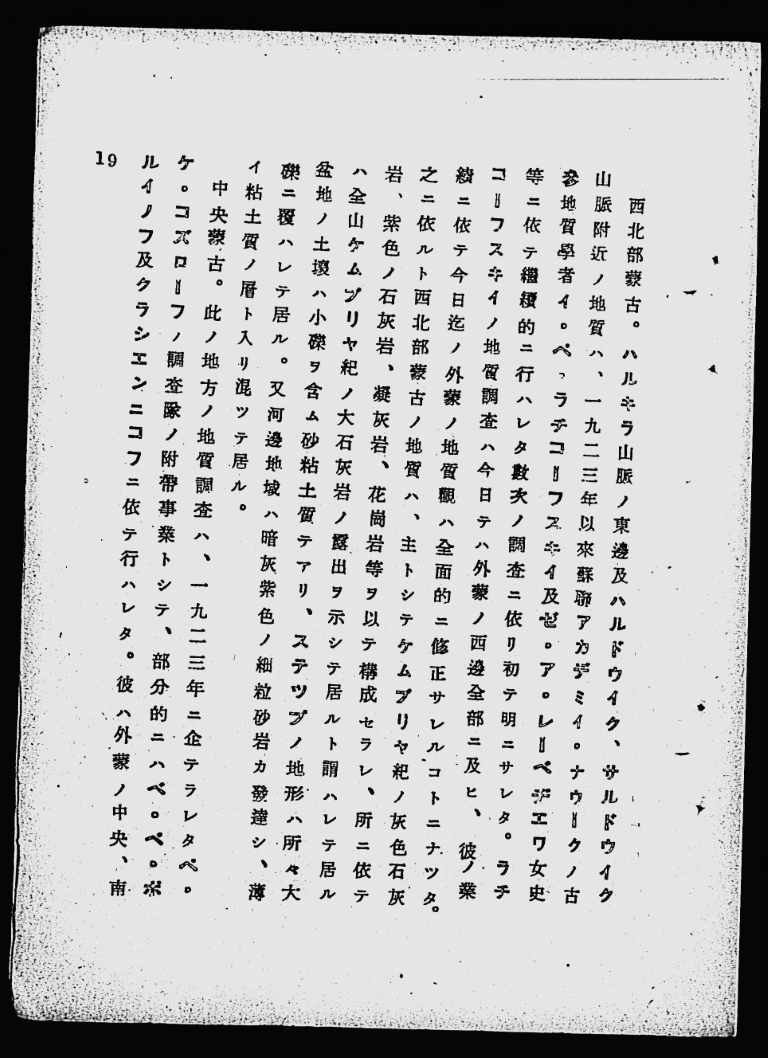 西北部蒙古。ハルキラ山脈ノ東邊及ハルドウイク、サルドウイク
山脈附近ノ地質ハ、一九二三年以來蘇聯アカデミイ。ナウークノ古
參地質學者イ。ペ。ラチコーフスキイ及ゼ。ア。レーベヂエワ女史
等ニ依テ繼續的ニ行ハレタ數次ノ調査ニ依リ初テ明ニサレタ。ラチ
コーフスキイノ地質調査ハ今日テハ外蒙ノ西邊全部ニ及ヒ、彼ノ業
績ニ依テ今日迄ノ外蒙ノ地質觀ハ全面的ニ修正サレルコトニナツタ。
之ニ依ルト西北部蒙古ノ地質ハ、主トシテケムブリヤ紀ノ灰色石灰
岩、紫色ノ石灰岩、凝灰岩、花崗岩等ヲ以テ構成セラレ、所ニ依テ
ハ全山ケムブリヤ紀ノ大石灰岩ノ露出ヲ示シテ居ルト謂ハレテ居ル
盆地ノ土壤ハ小礫ヲ含ム砂粘土質テアリ、ステツプノ地形ハ所々大
礫ニ覆ハレテ居ル。又河邊地域ハ暗灰紫色ノ細粒砂岩カ發達シ、薄
イ粘土質ノ層ト入リ混ツテ居ル。
中央蒙古。此ノ地方ノ地質調査ハ、一九二三年ニ企テラレタペ。
ケ。コズローフノ調査隊ノ附帶事業トシテ、部分的ニハペ。ペ。ポ
ルイノフ及クラシエンニコフニ依テ行ハレタ。彼ハ外蒙ノ中央、南
19